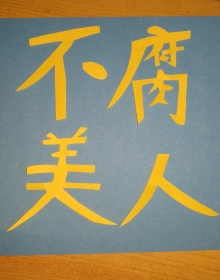 不腐
美人